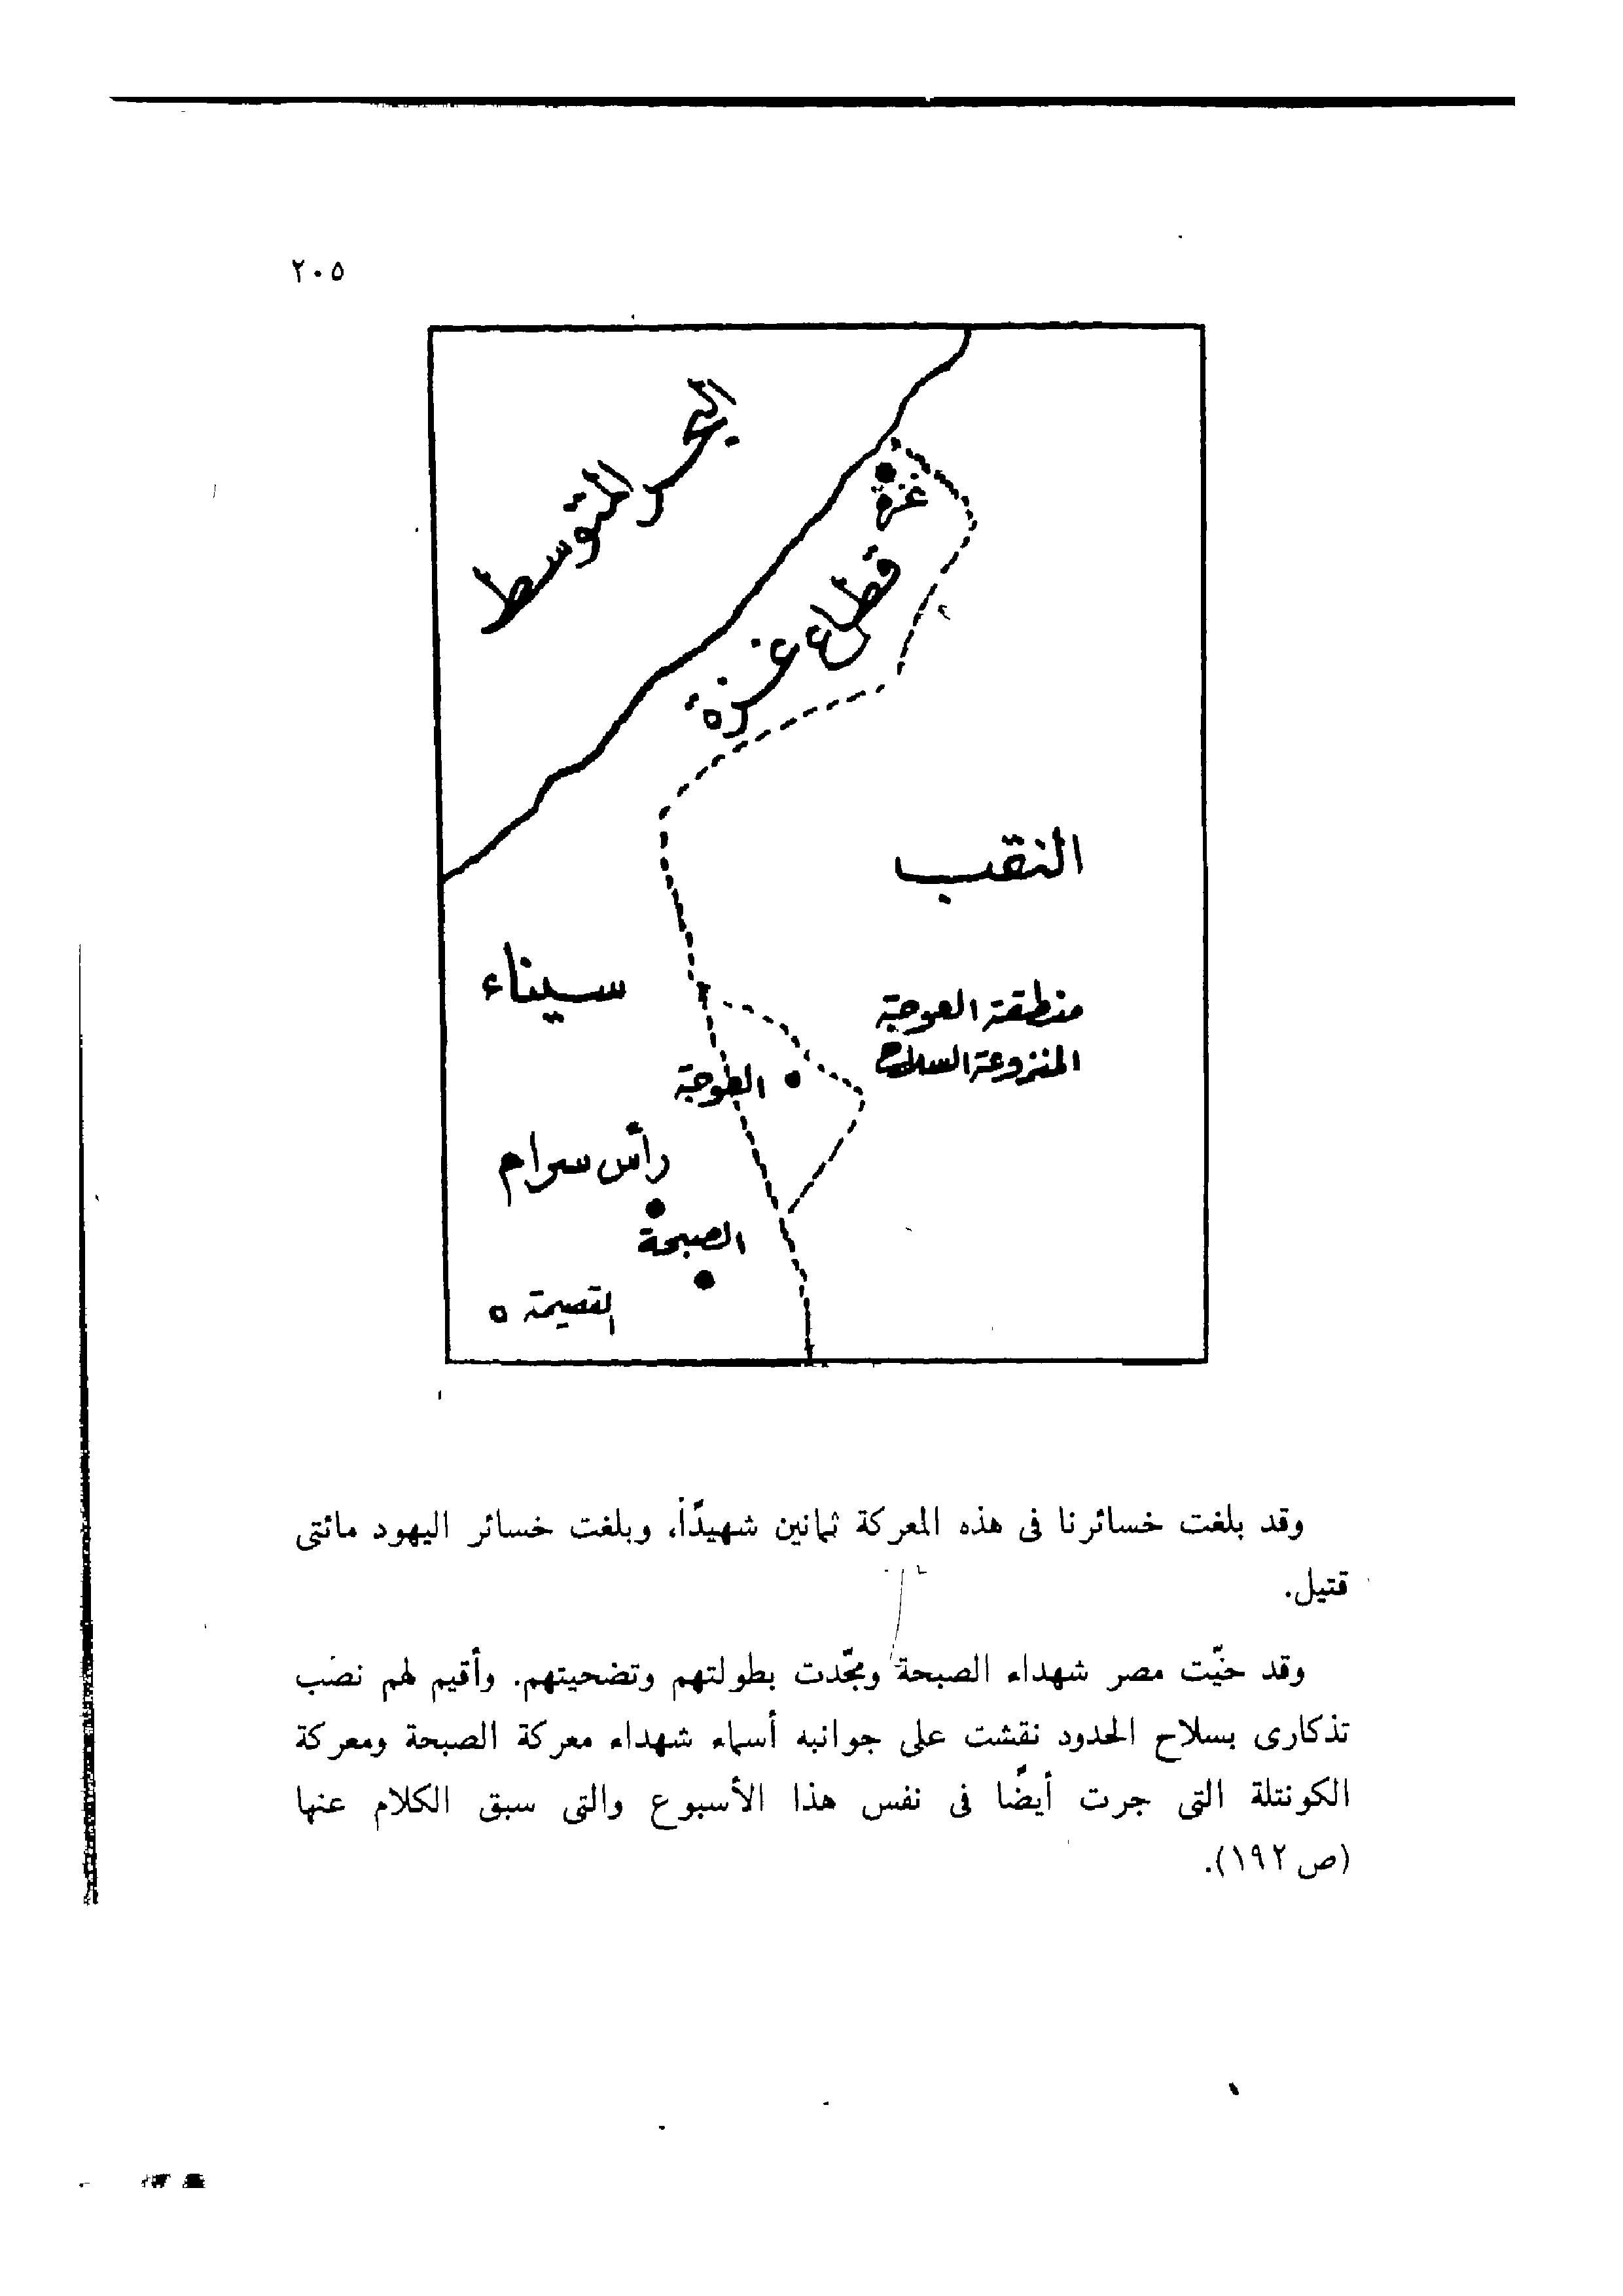 ٢٠٥
البحر المتوسط
غزة
قطاع غزة
النقب
سيناء
منطقة العوجة
المنزوعة السلاح
العوجة
رأس سرام
الصبحة
القصيمة
وقد بلغت خسائرنا فى هذه المعركة ثمانين شهيدًا، وبلغت خسائر اليهود مائتى
قتيل.
وقد حيّت مصر شهداء الصبحة ومجّدت بطولتهم وتضحيتهم. وأقيم لهم نصب
تذكارى بسلاح الحدود نقشت على جوانبه أسماء شهداء معركة الصبحة ومعركة
الكونتلة التى جرت أيضًا فى نفس هذا الأسبوع والتى سبق الكلام عنها
(ص ١٩٢).